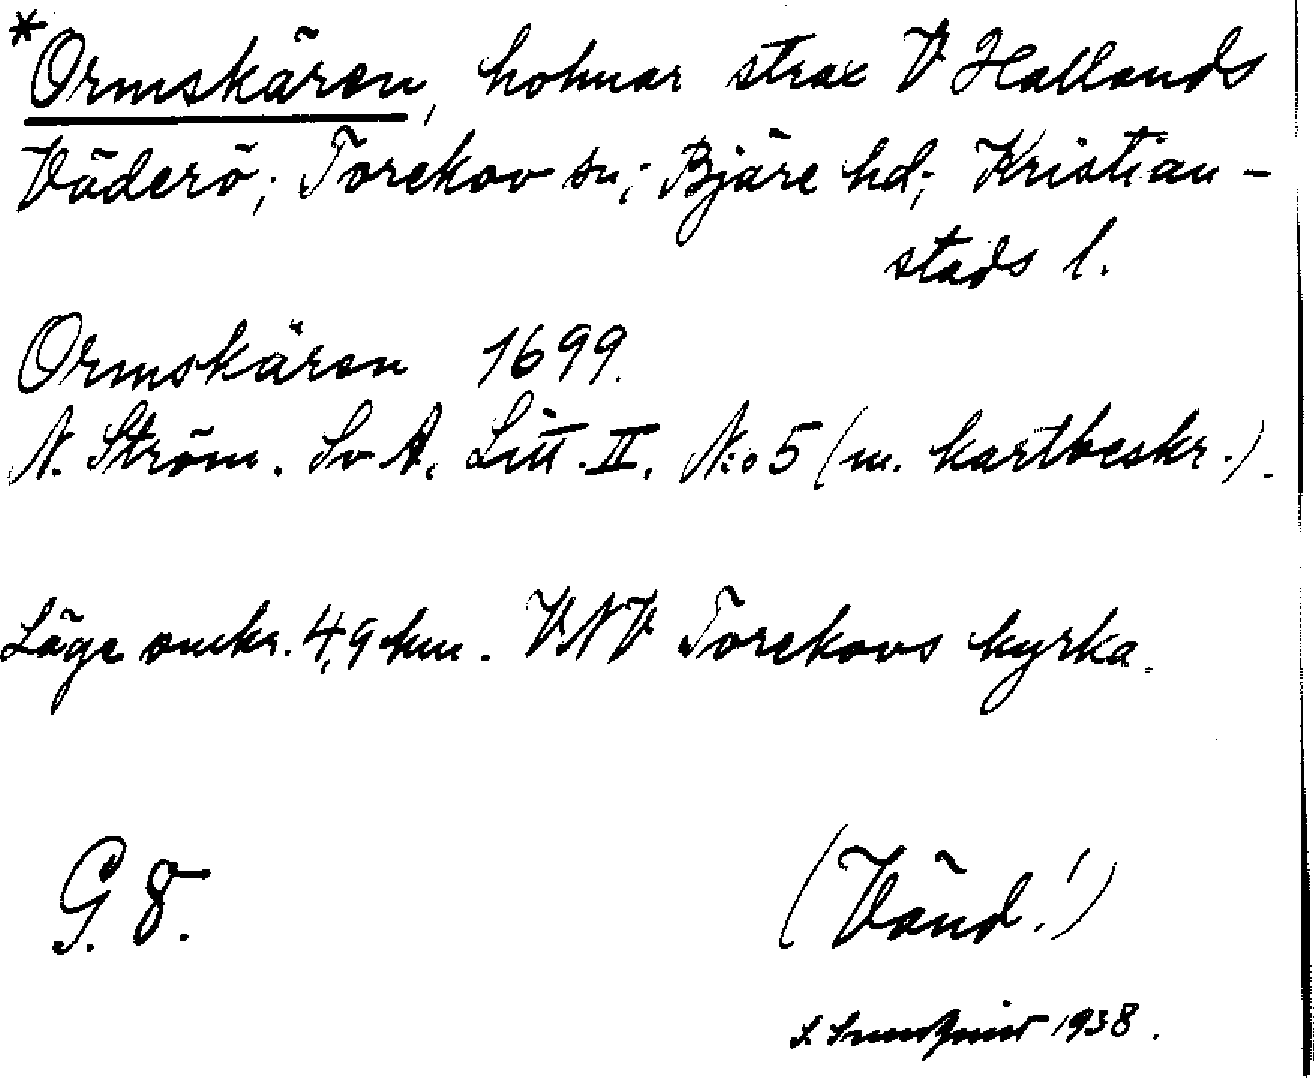 *Ormskären, holmar strax V Hallands
Väderö; Torekov sn; Bjäre hd; Kristian-
stads l.
Ormskären 1699.
N. Ström. Sv A. Litt. II. N:o 5 (m. kartbeskr.).
Läge omkr. 4,9 km. VNV Torekovs kyrka.
G. 8.
(Vänd!)
S. 1938.